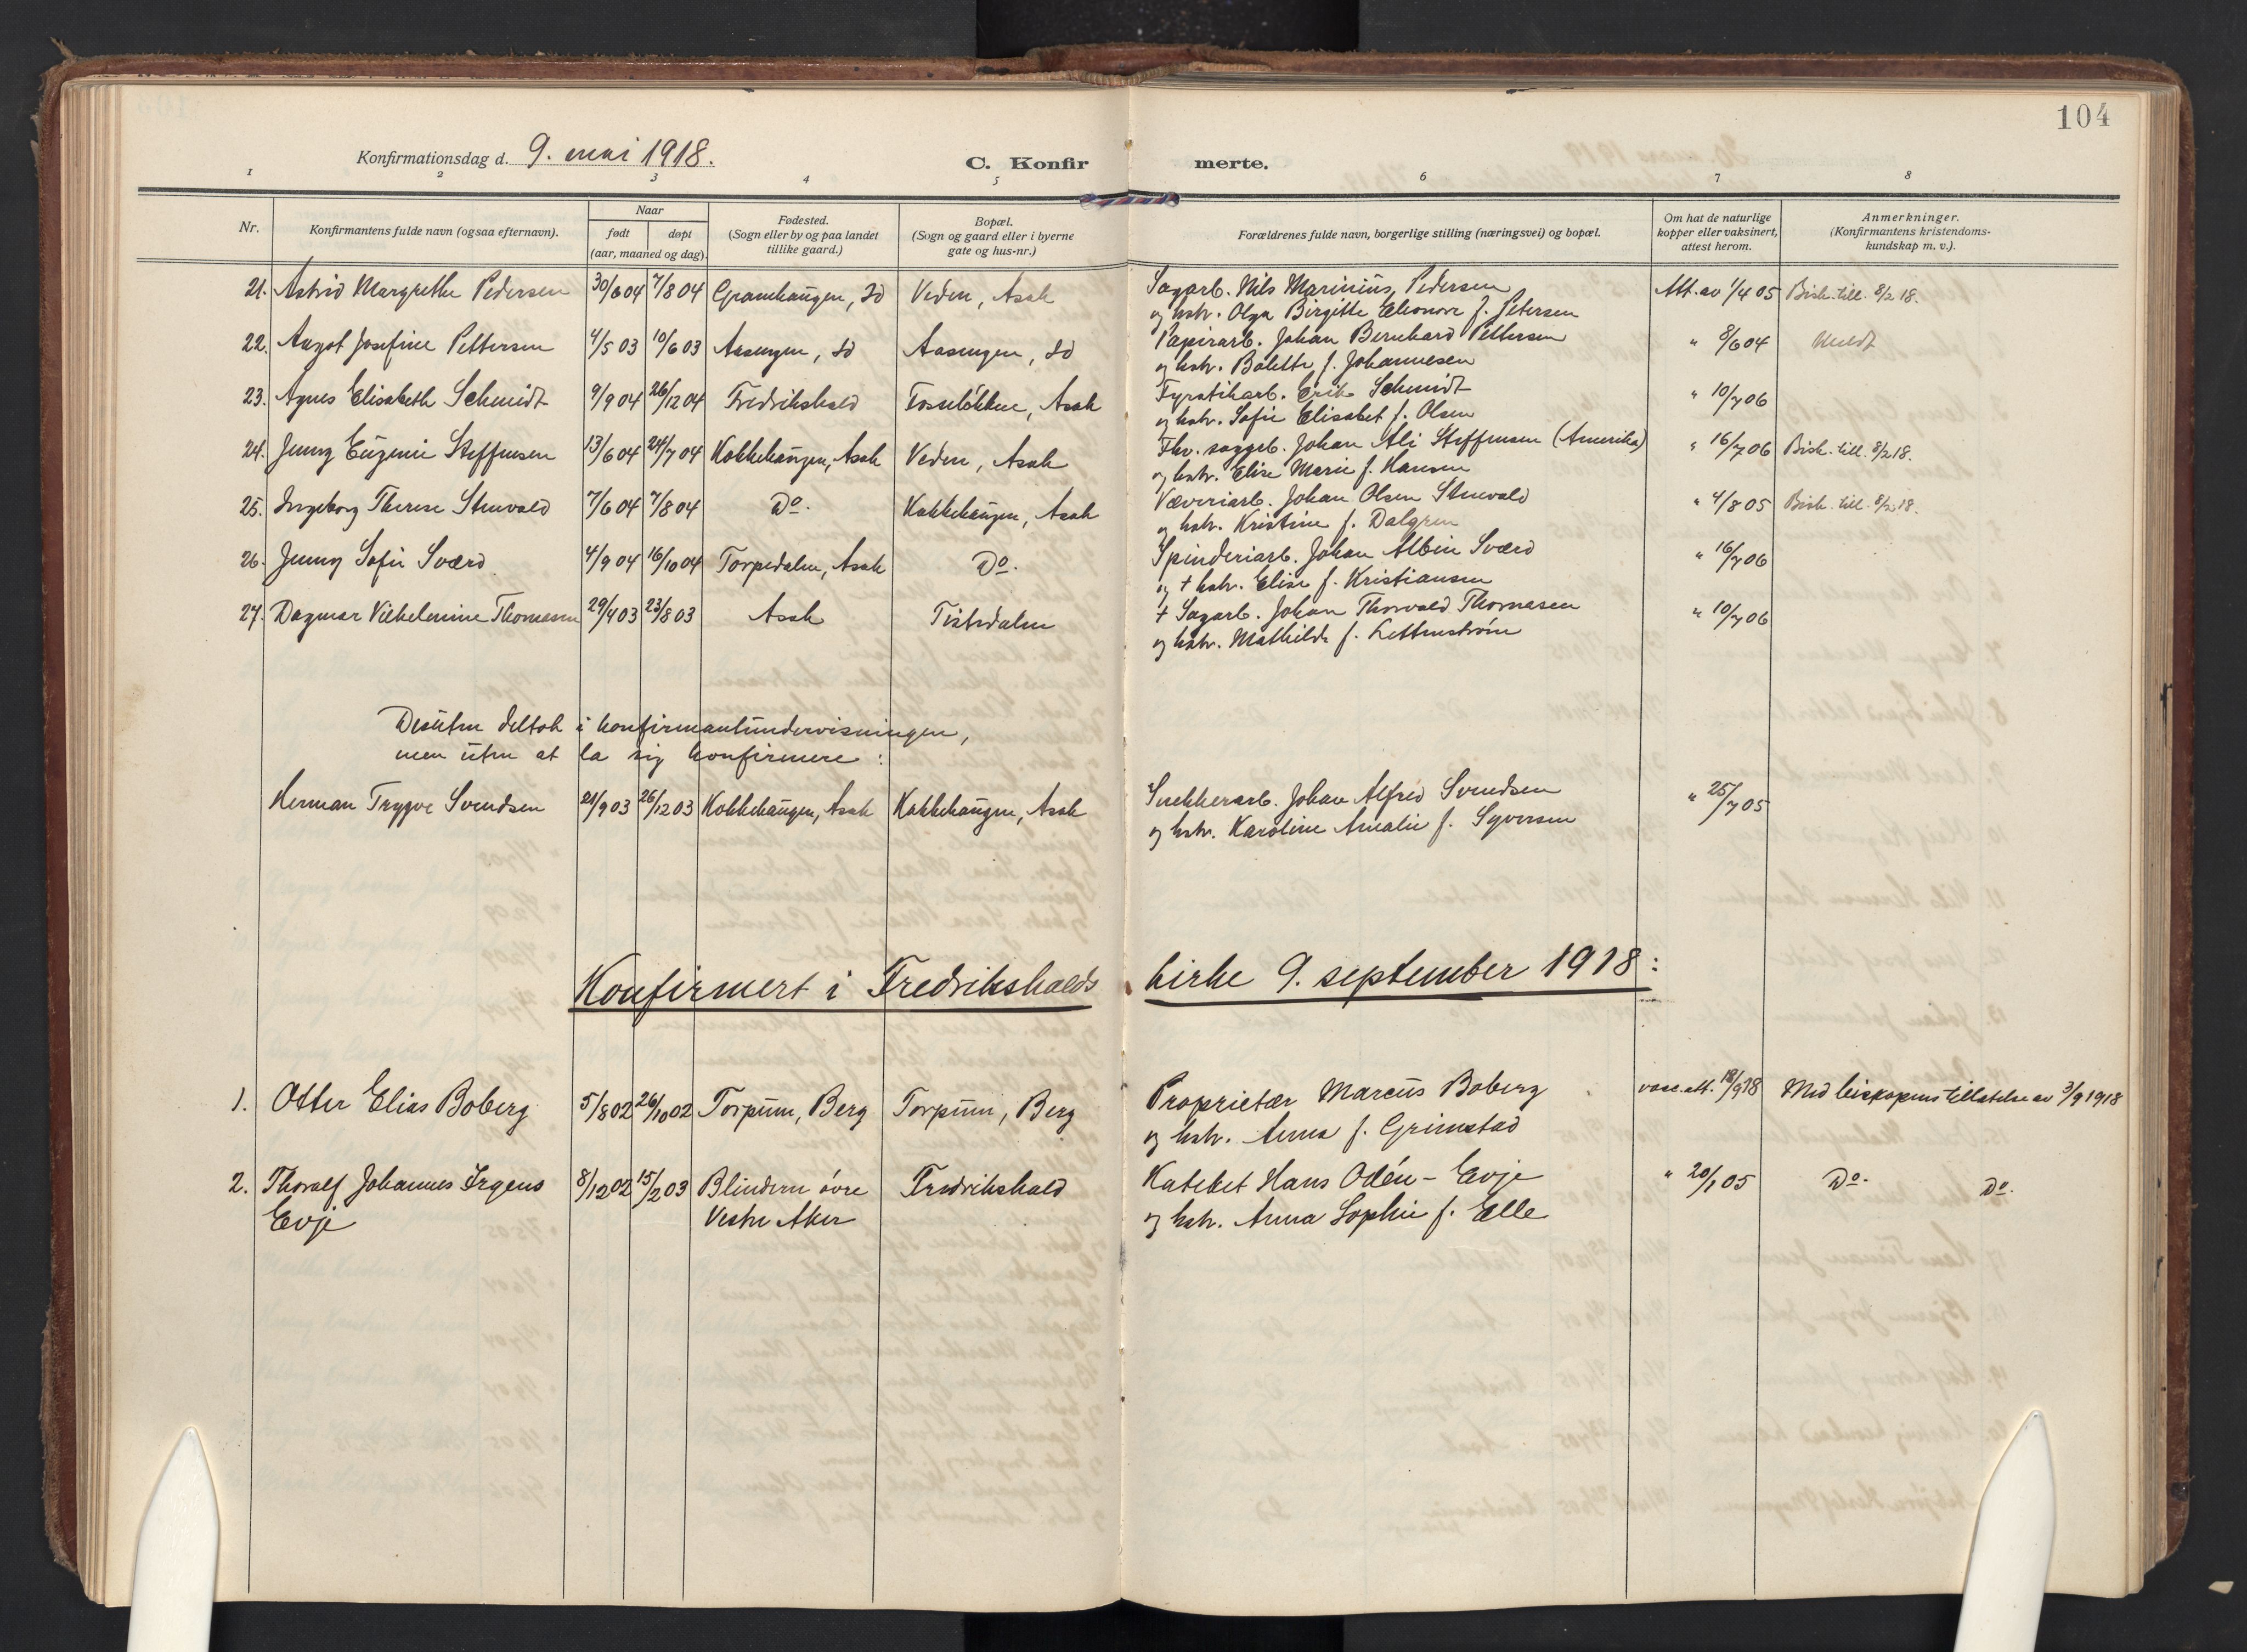 104
Konfirmationsdag d. 9. mai 1918.
C. Konfir merte.
1 2 3 4 5 6 7 8
Nr.
Konfirmantens fulde navn (ogsaa efternavn).
Naar
født døpt
(aar, maaned og dag).
Fødested.
(Sogn eller by og paa landet
tillike gaard.)
Bopæl.
(Sogn og gaard eller i byerne
gate og hus-nr.)
Forældrenes fulde navn, borgerlige stilling (næringsvei) og bopæl.
Om hat de naturlige
kopper eller vaksinert,
attest herom.
Anmerkninger.
(Konfirmantens kristendoms-
kundskap m. v.).
21. Astrid Margrethe Pedersen 30/6 04 7/8 04 Granehaugen, Id Veden, Asak Sagarb. Nils Marinius Pedersen Att. av 1/4 05 Bisk. till. 8/2 18.
og hstr. Olga Birgitte Eleonore f. Petersen
22. Aagot Josefine Pettersen 4/5 03 10/6 03 Aasengen, Id Aasengen, Id Papirarb. Johan Bernhard Pettersen " 8/6 04
og hstr. Bolette f. Johannesen
23. Agnes Elisabeth Schmidt 9/9 04 26/12 04 Fredrikshald Fosseløkken, Asak Fyrstikarb. Erik Schmidt " 10/7 06
og hstr. Sofie Elisabet f. Olsen
24. Jenny Eugenie Steffensen 13/6 04 24/7 04 Kokkehaugen, Asak Veden, Asak Fhv. saggeb. Johan Ali Steffensen (Amerika) " 16/7 06 Bisk. till. 8/2 18.
og hstr. Elise Marie f. Hansen
25. Ingeborg Therese Stenvald 7/6 04 7/8 04 Do. Kokkehaugen, Asak Væveriarb. Johan Olsen Stenvald " 4/8 05 Bisk. till. 8/2 18.
og hstr. Kristine f. Dalgren
26. Jenny Sofie Sværd 4/9 04 16/10 04 Torpedalen, Asak Do. Spinderiarb. Johan Albin Sværd " 16/7 06
og † hstr. Elise f. Kristiansen
27. Dagmar Vilhelmine Thomasen 29/4 03 23/8 03 Asak Tistedalen † Sagarb. Johan Thorvald Thomasen " 10/7 06
og hstr. Mathilde f. Lettenstrøm
Desuten deltok i konfirmantundervisningen,
men uten at la sig konfirmere:
Herman Trygve Svendsen 21/9 03 26/12 03 Kokkehaugen, Asak Kokkehaugen, Asak Snekkerarb. Johan Alfred Svendsen " 25/7 05
og hstr. Karoline Amalie f. Syversen
Konfirmert i Fredrikshalds kirke 9. september 1918:
1. Otter Elias Boberg 5/8 02 26/10 02 Torpum, Berg Torpum, Berg Proprietær Marcus Boberg vacc. att. 18/9 18 Med biskopens tillatelse av 3/9 1918
og hstr. Anna f. Grimstad
2. Thoralf Johannes Irgens 8/12 02 15/2 03 Blindern øvre Fredrikshald Kateket Hans Odén-Evje " 20/1 05 Do. Do.
Evje Vestre Aker og hstr. Anna Sophie f. Elle